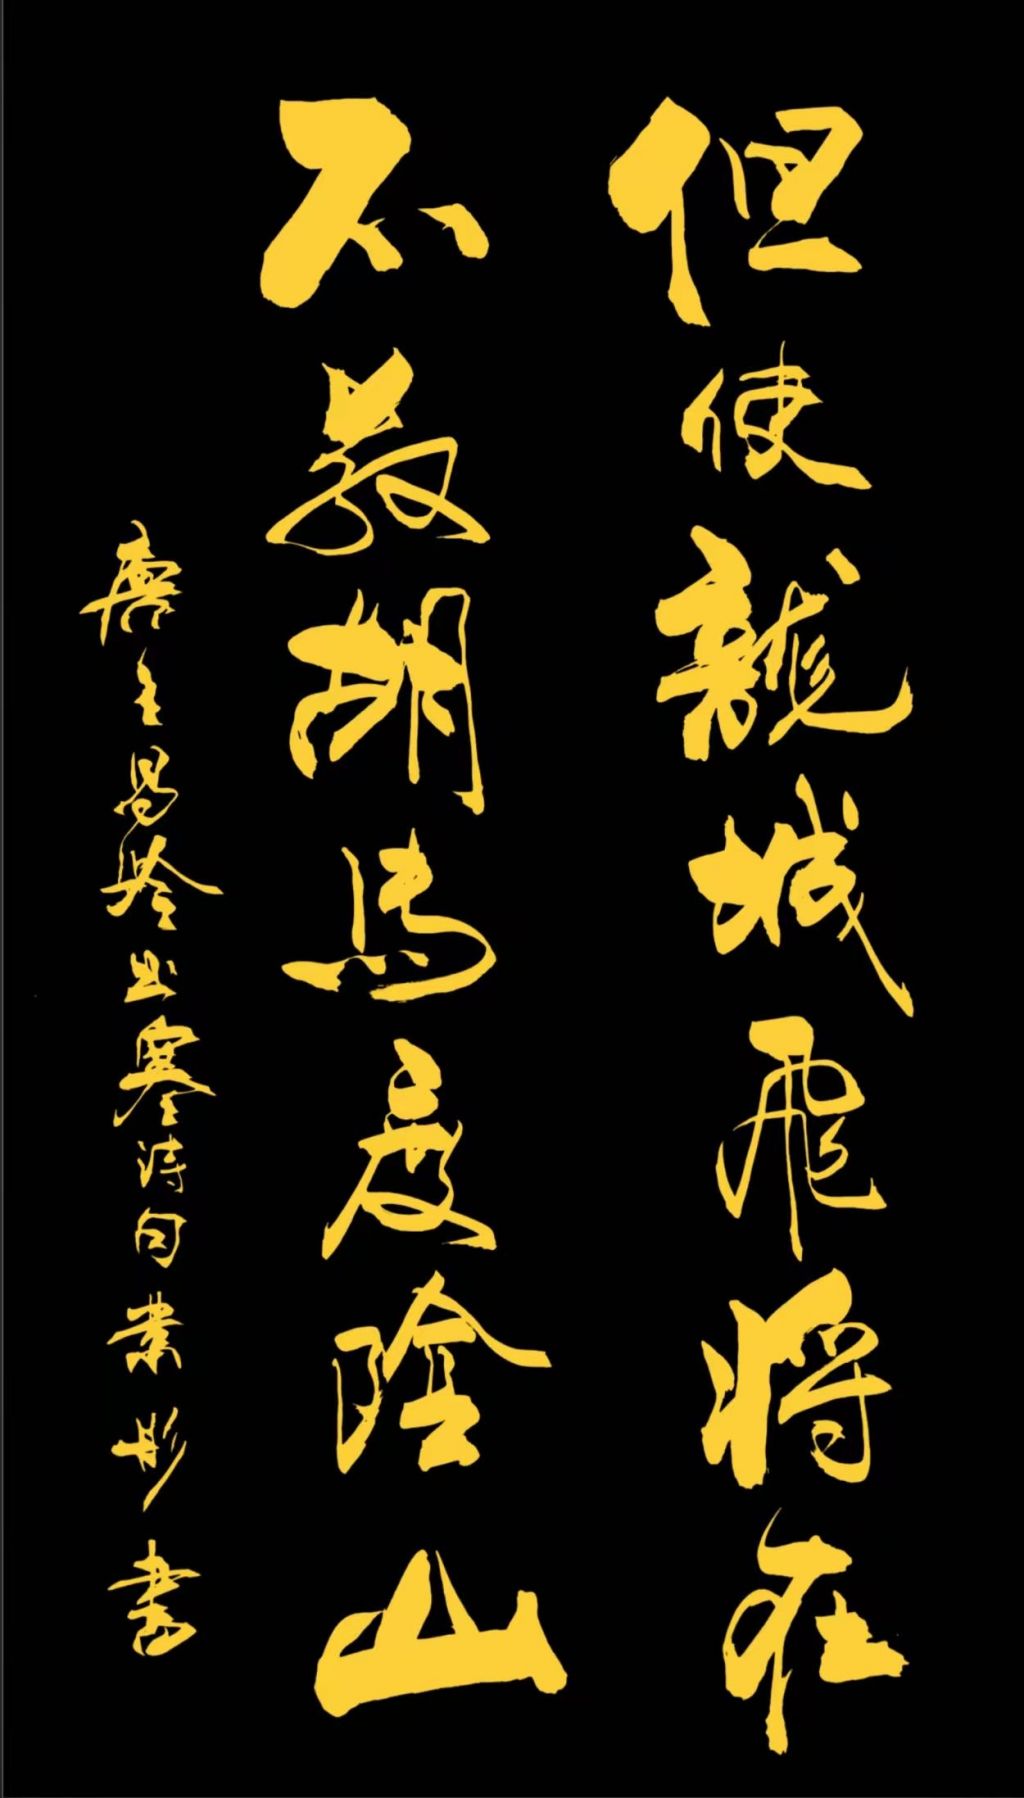 但使龍城飛將在
不教胡馬度陰山
唐王昌齡出塞詩句業彬書